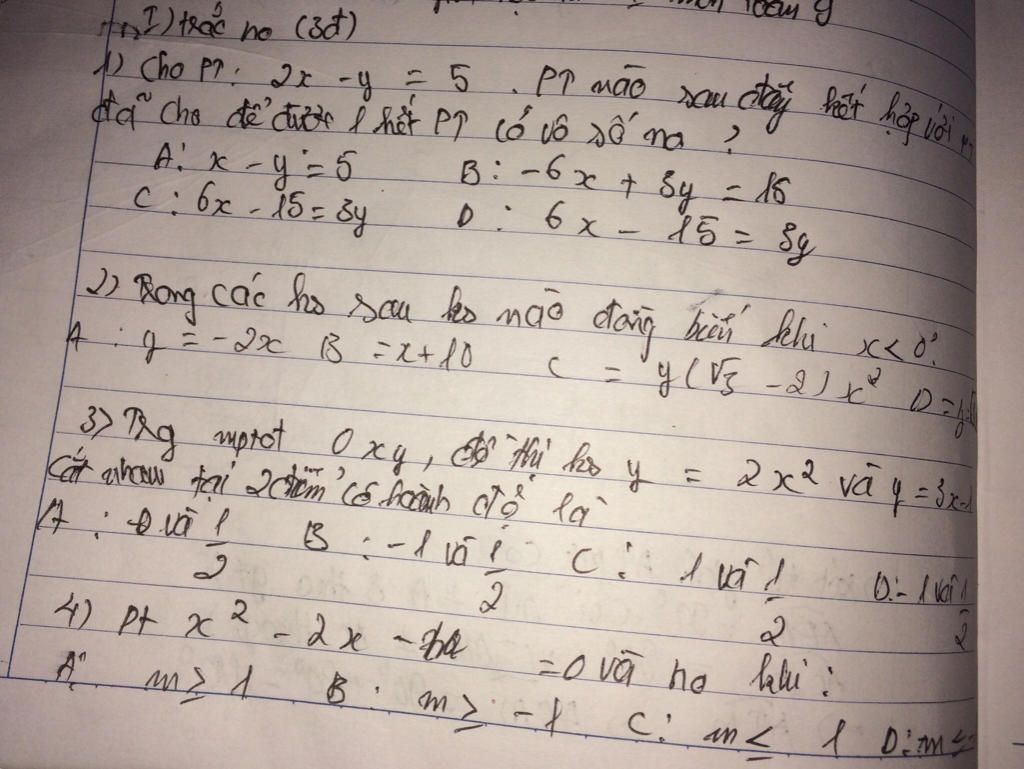 môn Toán 9
I) trắc no (3đ)
1) Cho PT: 2x - y = 5 . PT nào sau đây kết hợp với PT
đã cho để được 1 hệ PT có vô số no ?
A: x - y = 5 B: -6x + 3y = 15
C: 6x - 15 = 3y D: 6x - 15 = 3y
2) Trong các hs sau hs nào đồng biến khi x < 0:
A: y = -2x B = x + 10 C = y (√3 - 2) x² D = y =
3) Trg mptđ Oxy, đồ thị hs y = 2x² và y = 3x - 1
cắt nhau tại 2 điểm có hoành độ là
A: và 1/2 B: -1 và 1/2 C: 1 và 1/2 D: -1 và 1/2
4) Pt x² - 2x - = 0 và no khi:
A: m ≥ 1 B: m ≥ -1 C: m ≤ 1 D: m ≤